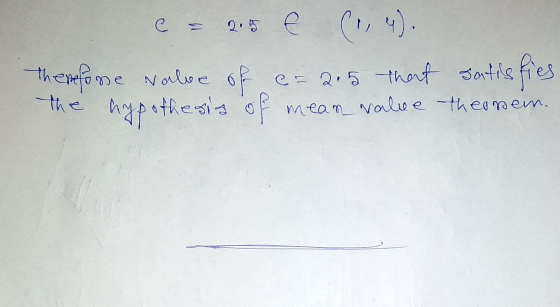 c = 2.5 ∈ (1, 4).
Therefore value of c = 2.5 that satisfies
the hypothesis of mean value theorem.